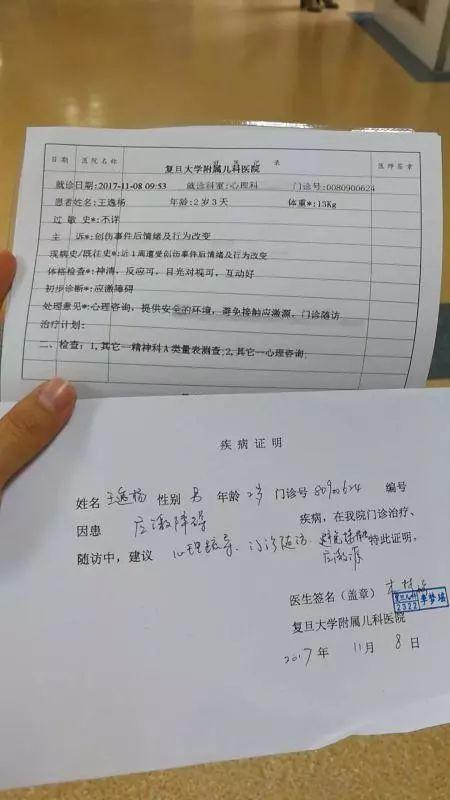 日期 医院名称 记录 医师签章
复旦大学附属儿科医院
就诊日期:2017-11-08 09:53 就诊科室:心理科 门诊号:0080900624
患者姓名:王逸杨 年龄:2岁3天 体重*:13Kg
过敏史*:不详
主 诉*:创伤事件后情绪及行为改变
现病史/既往史*:近1周遭受创伤事件后情绪及行为改变
体格检查*:神清,反应可,目光对视可,互动好
初步诊断*:应激障碍
处理意见*:心理咨询,提供安全的环境,避免接触应激源,门诊随访
治疗计划:
二、检查:1,其它—精神科A类量表测查;2,其它—心理咨询;
疾病证明
姓名 王逸杨 性别 男 年龄 2岁 门诊号 80900624 编号
因患 应激障碍 疾病,在我院门诊治疗、
随访中,建议 心理疏导、门诊随访、避免接触 特此证明。
应激源
医生签名(盖章)
复旦大学附属儿科医院
2017年 11月 8日